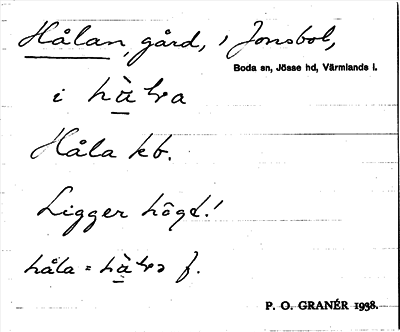 Hålan, gård, i Jonsbol,
Boda sn, Jösse hd, Värmlands l.
i
Håla kb.
Ligger högt!
håla = f.
P. O. GRANÉR 1938.